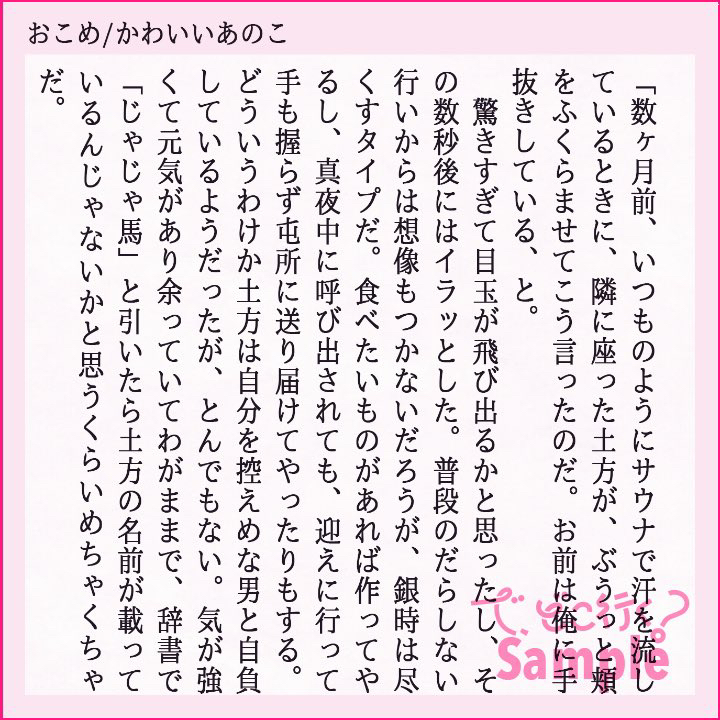 おこめ/かわいいあのこ
「数ヶ月前、いつものようにサウナで汗を流し
ているときに、隣に座った土方が、ぶうっと頬
をふくらませてこう言ったのだ。お前は俺に手
抜きしている、と。
　驚きすぎて目玉が飛び出るかと思ったし、そ
の数秒後にはイラッとした。普段のだらしない
行いからは想像もつかないだろうが、銀時は尽
くすタイプだ。食べたいものがあれば作ってや
るし、真夜中に呼び出されても、迎えに行って
手も握らず屯所に送り届けてやったりもする。
どういうわけか土方は自分を控えめな男と自負
しているようだったが、とんでもない。気が強
くて元気があり余っていてわがままで、辞書で
「じゃじゃ馬」と引いたら土方の名前が載って
いるんじゃないかと思うくらいめちゃくちゃ
だ。
で、どこ行く?
Sample